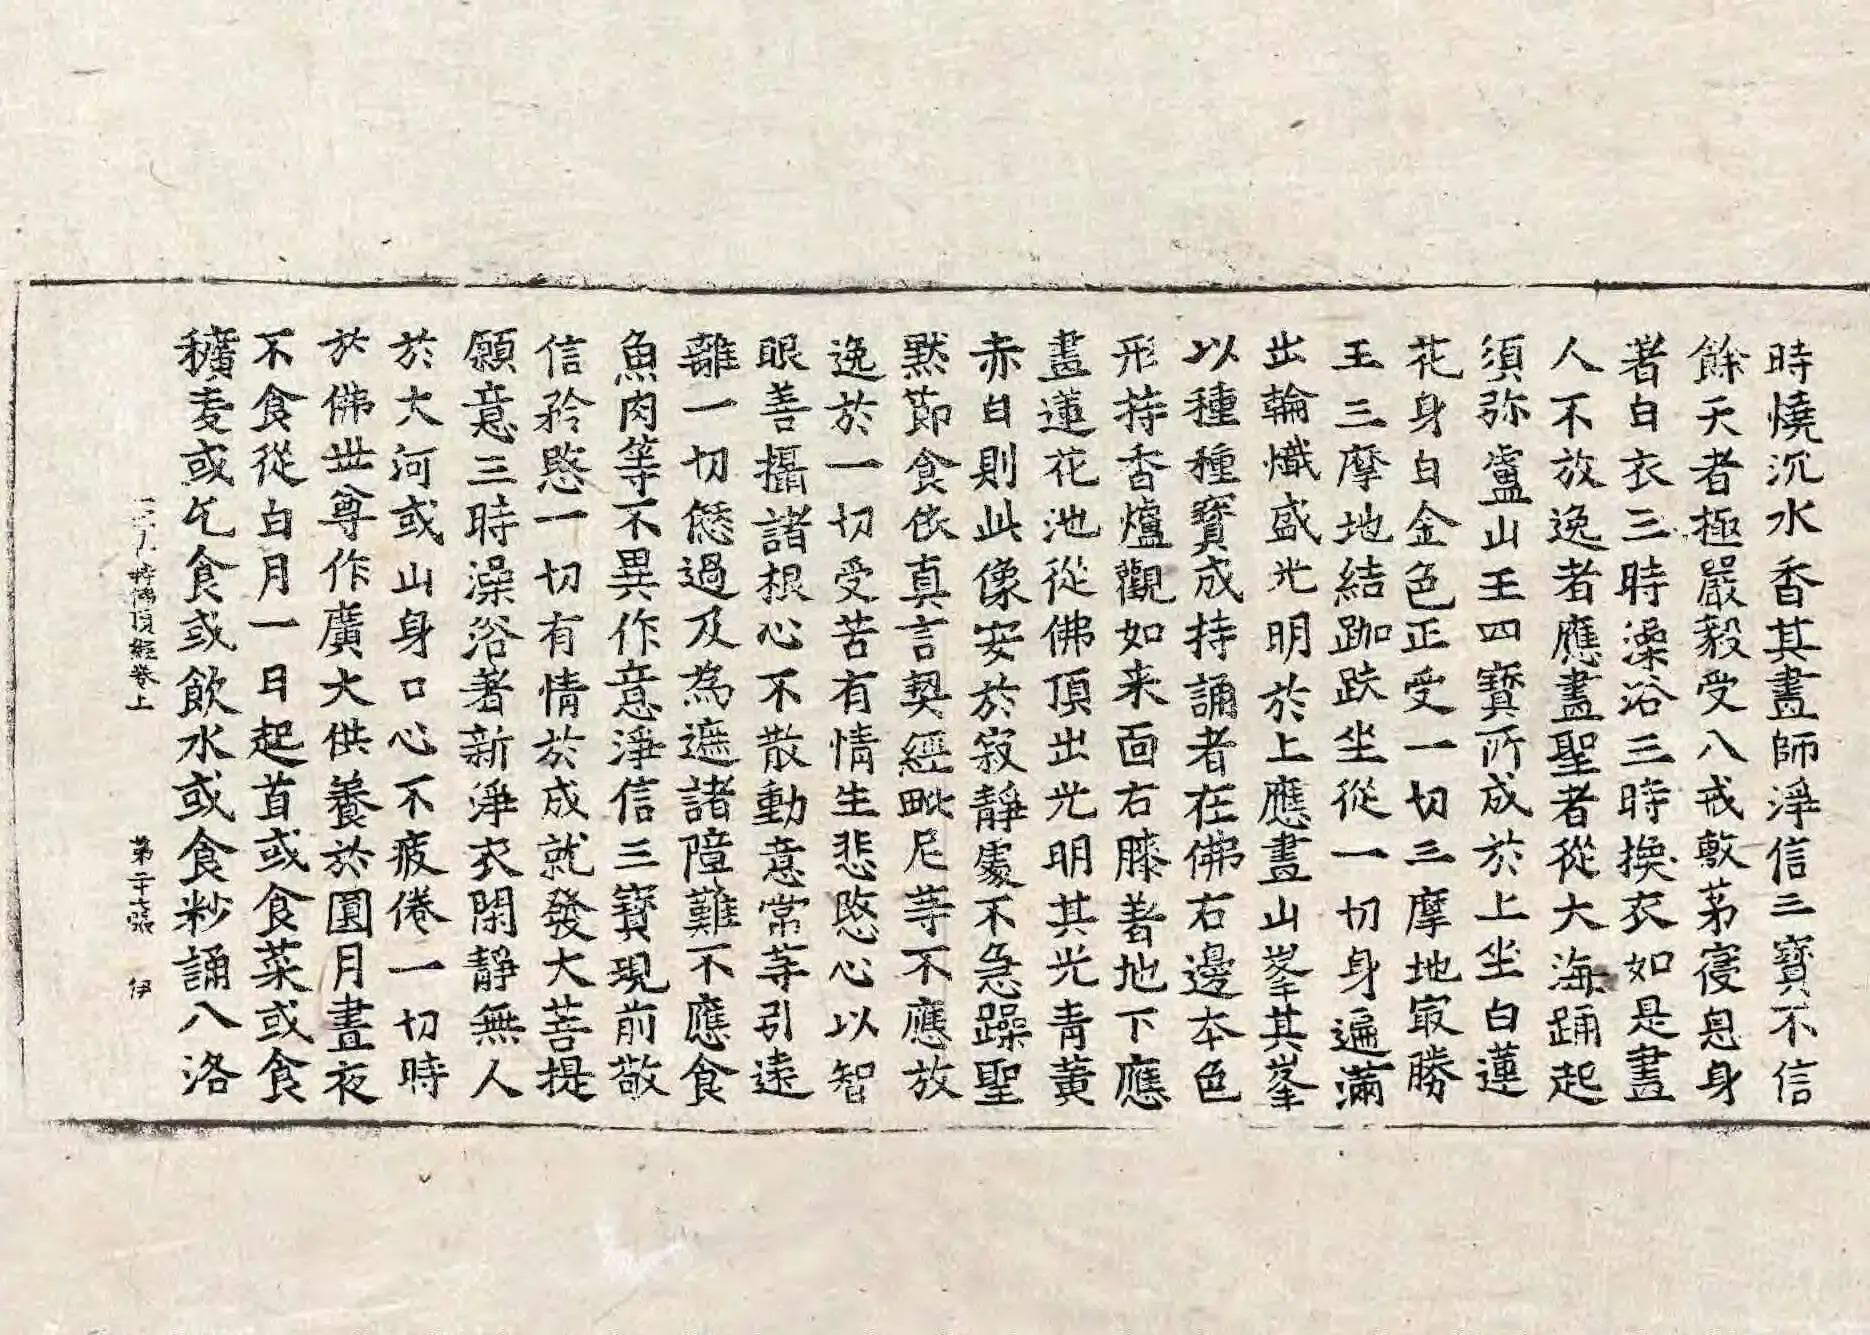 時燒沉水香其畫師淨信三寶不信
餘天者極嚴毅受八戒敷茅寑息身
著白衣三時澡浴三時換衣如是畫
人不放逸者應畫聖者從大海踊起
須弥盧山王四寶所成於上坐白蓮
花身白金色正受一切三摩地㝡勝
王三摩地結跏趺坐從一切身遍滿
出輪熾盛光明於上應畫山峯其峯
以種種寶成持誦者在佛右邊本色
形持香爐觀如来面右膝著地下應
畫蓮花池從佛頂出光明其光青黃
赤白則此像安於寂靜處不急躁聖
默節食依真言契經毗尼等不應放
逸於一切受苦有情生悲愍心以智
眼善攝諸根心不散動意常等引遠
離一切㤪過及為遮諸障難不應食
魚肉等不異作意淨信三寶現前敬
信矜愍一切有情於成就發大菩提
願意三時澡浴著新淨衣閑靜無人
於大河或山身口心不疲倦一切時
於佛世尊作廣大供養於圓月晝夜
不食從白月一日起首或食菜或食
穬麦或乞食或飲水或食麨誦八洛
佛頂經卷上 第二十七張 伊